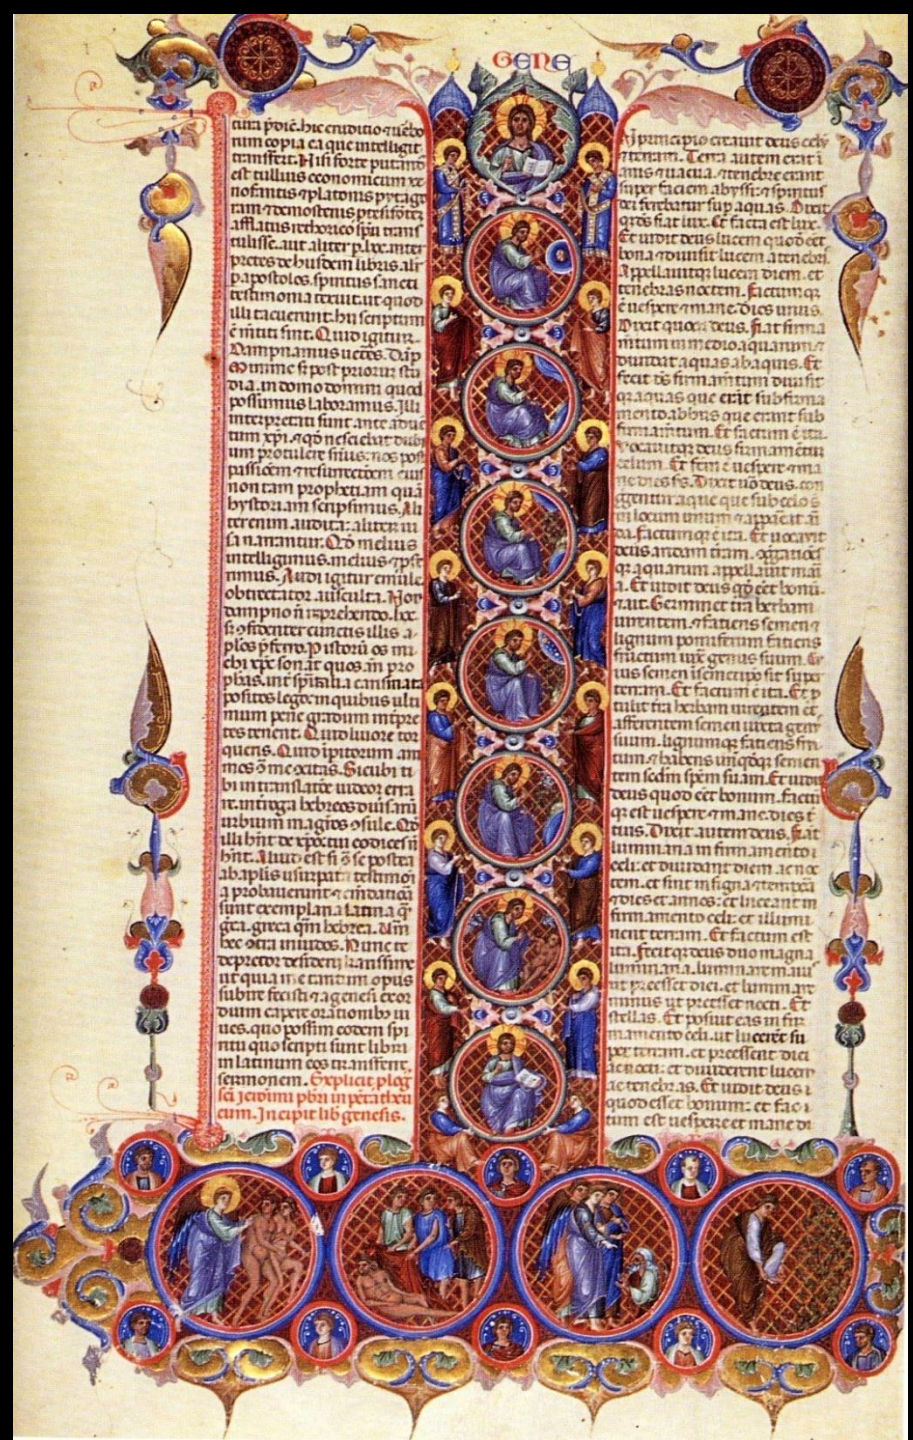 GENE
tura p̄diē. hic eruditio ⁊ ubo
rum copia ea que intelligit
transfert. Nisi forte putando
est tullius economicum xe
nofontis ⁊ platonis pytago
ram ⁊ demostenis
afflatus rethorico spū trans
tulisse. aut aliter p. lxx. inter
pretes de husdem libris. alit
p apostolos. spiritus sancti
testimonia texuit. ut quod
illi tacuerunt. hii scriptum
ē mtiti sint. Quid igitur.
Dampnamus uetes.
Minime si post priorum stu
dia. in domo domini quod
possumus laboramus. Illi
interpretati sunt ante aduē
tum xp̄i. ⁊ qō nesciebāt dubi
um protulere sn̄iis: nos post
passiōem ⁊ resurrectiōem eius
non tam prophetiam quā
hystoriam scripsimus. Ali
ter enim audita: aliter ui
sa narrantur. Qō melius
intelligimus. melius ⁊
rimus. Audi igitur emule
obtrectator ausculta. Non
dampno n̄ reprehendo. lxx.
s; ꝯfidenter cunctis illis a
plos p̄fero. P istorū os mi
chi xpc sonāt quos in pro
phas. int̄ spiritalia carismata
positos lego: in quibus ulti
mum pene gradum intpre
tes tenent. Quid liuore tor
queris. Quid ipitorum ani
mos ꝯ me ꝯcitas. Sicubi ti
bi in translatōe uideor erra
re. intrroga hebreos diūsarū
urbium magrōs ꝯsule. Qō
illi hn̄t de xpō. tui codices n̄
hn̄t. Aliud est si ꝯ se postea
ab aplis usurpata testimōia
probauerunt ⁊ emdatiōa
sunt exemplaria latina q̄
greca. greca q̄m hebrea. Ūm
hec ꝯtra inuidos. Nunc te
deprecor desideri krauissime
ut quia me tantum opus
subire fecisti ⁊ a genesi exor
dium capere orationibȝ iu
ues. quo possim eodem spi
ritu quo scripti sunt libri
in latinum eos transferre
sermonem. Explicit plog
sc̄i jeronimi pbri in
cum. Incipit lib genesis.
N principio creauit deus celū
⁊ terram. Terra autem erat i
anis ⁊ uacua. ⁊ tenebre erant
super faciem abyssi: ⁊ spiritus
dei ferebatur sup aquas. Dixit
qȝ d̄s fiat lux. Et facta est lux.
Et uidit deus lucem quod eēt
bona ⁊ diuisit lucem a tenebris.
Appellauitqȝ lucem diem. et
tenebras noctem. Factumqȝ
ē uespere ⁊ mane. dies unus.
Dixit quoqȝ deus. Fiat firma
mtum in medio aquarum ⁊
diuidat aquas ab aquis. Et
fecit d̄s firmamtum diuisit
qȝ aquas que erāt sub firma
mento ab his que erant sub
firmamtum. Et factum ē ita.
Vocauitqȝ deus firmamētū
celum. Et fcm̄ ē uespere ⁊ ma
ne dies sc̄s. Dixit uō deus. con
gregentur aque que sub celo s
in locum unum ⁊ appaēat ari
da. Factumqȝ ē ita. Et uocauit
deus aridam tram.
qȝ aquarum appellauit mari
a. Et uidit deus qō eēt bonū.
⁊ ait. Germinet tra herbam
uirentem. ⁊ facientē semen ⁊
lignum pomiferum faciens
fructum iuxᵃ genus suum. Cu
ius semen ī semetipso sit super
terram. Et factum ē ita. Et p
tulit tra herbam uirentem et
afferentem semen iuxta gen
suum. lignumqȝ faciens fru
ctum. ⁊ habens unū qōqȝ semen
tem sedm̄ spēm suam. Et uidit
deus quod eēt bonum. factū
qȝ est uespere ⁊ mane. dies t
tius. Dixit autem deus. Fiāt
luminaria in firmamento c
eli: et diuidant diem ac noc
tem. et sint in signa ⁊ tempora
⁊ dies et annos: et luceant in
firmamento celi: et illumi
nent terram. Et factum est
ita. Fecitqȝ deus duo magna
luminaria. luminare maiu
ut preesset diei. et lumināre
minus ut preesset nocti. Et
stellas. Et posuit eas in fir
mamento celi. ut lucerēt su
per terram. et preessent diei
ac nocti: et diuiderent lucem
ac tenebras. Et uidit deus
quod esset bonum: et fac
tum est uespere et mane di